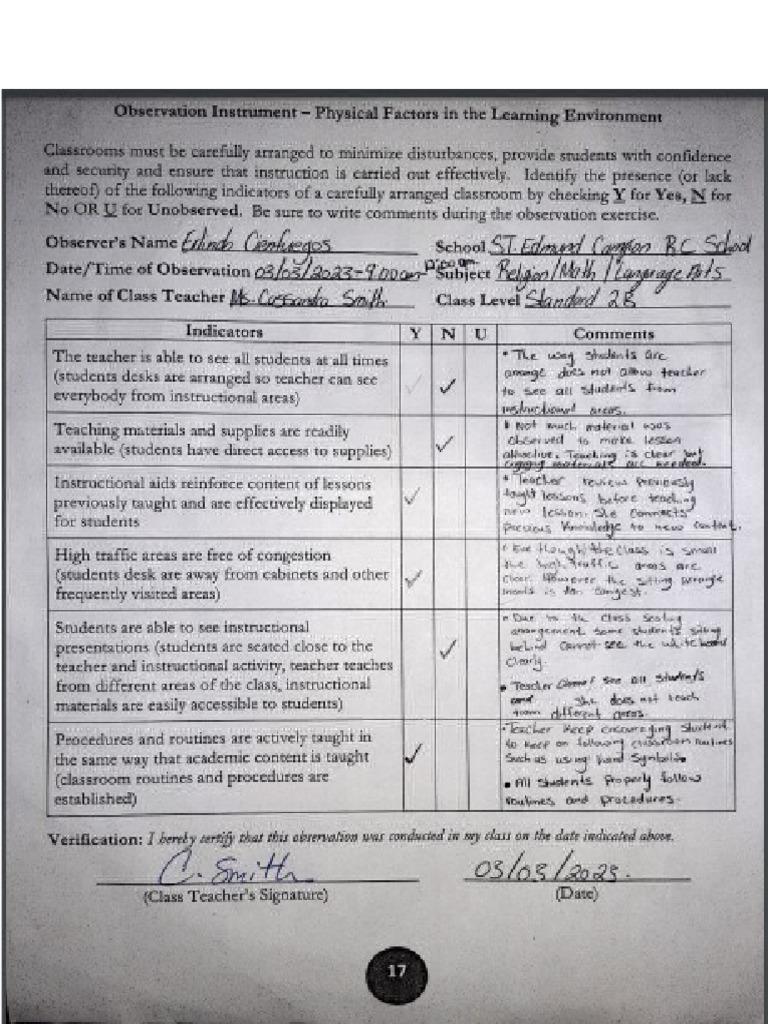 Observation Instrument – Physical Factors in the Learning Environment
Classrooms must be carefully arranged to minimize disturbances, provide students with confidence
and security and ensure that instruction is carried out effectively. Identify the presence (or lack
thereof) of the following indicators of a carefully arranged classroom by checking Y for Yes, N for
No OR U for Unobserved. Be sure to write comments during the observation exercise.
Observer's Name Erlindo Cienfuegos School ST. Edmund Campion RC School
Date/Time of Observation 03/03/2023-9:00am Subject Religion/Math/Language Arts
Name of Class Teacher Ms. Cassandra Smith Class Level Standard 2B
Indicators Y N U Comments
The teacher is able to see all students at all times
(students desks are arranged so teacher can see
everybody from instructional areas)
✓
• The way students are
arrange does not allow teacher
to see all students from
instructional areas.
Teaching materials and supplies are readily
available (students have direct access to supplies)
✓
• Not much material was
observed to make lesson
attractive. Teaching is clear but
materials are needed.
Instructional aids reinforce content of lessons
previously taught and are effectively displayed
for students
✓
• Teacher review previously
taught lessons before teaching
new lesson. She connects
previous knowledge to new content.
High traffic areas are free of congestion
(students desk are away from cabinets and other
frequently visited areas)
✓
• Eve though the class is small
the high traffic areas are
clear. However the sitting
is congest.
Students are able to see instructional
presentations (students are seated close to the
teacher and instructional activity, teacher teaches
from different areas of the class, instructional
materials are easily accessible to students)
✓
• Due to the class seating
arrangement some students sitting
behind cannot see the white board
clearly.
• Teacher cannot see all students
and she does not teach
from different areas.
Procedures and routines are actively taught in
the same way that academic content is taught
(classroom routines and procedures are
established)
✓
• Teacher keep encouraging student
to keep on following classroom routines
such as using hand symbols
• All students properly follow
routines and procedures.
Verification: I hereby certify that this observation was conducted in my class on the date indicated above.
C. Smith 03/03/2023.
(Class Teacher's Signature) (Date)
17